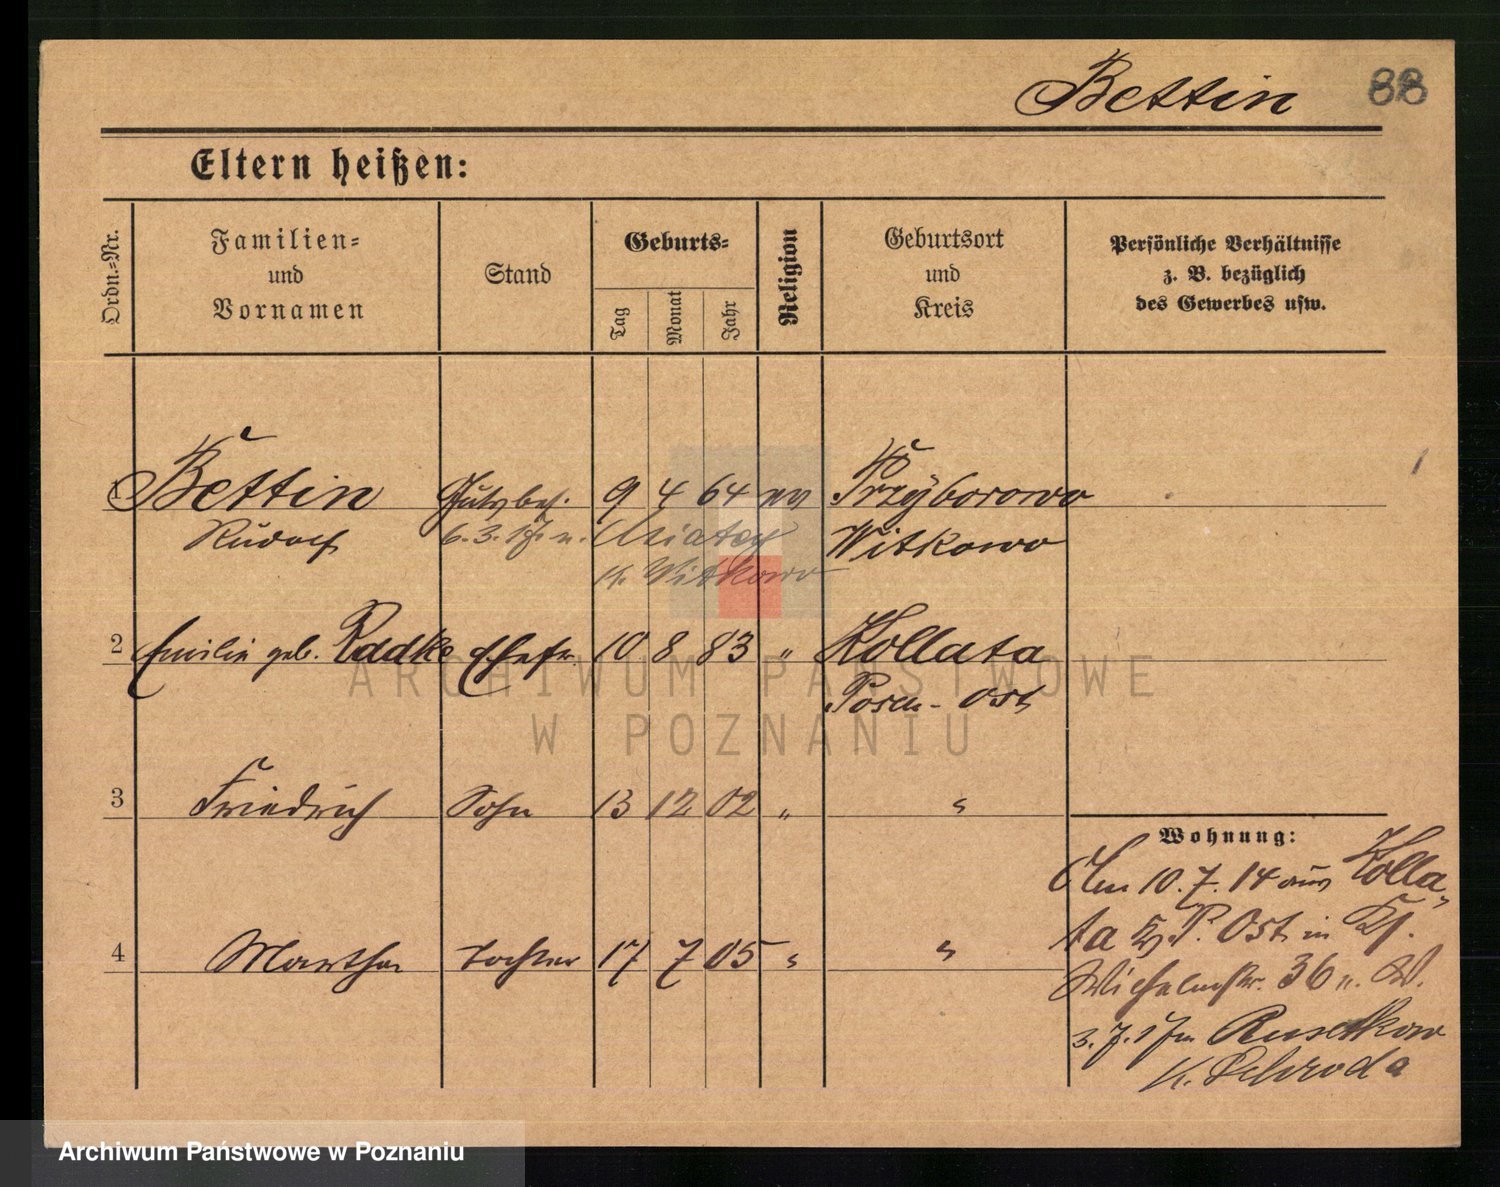 Bettin 88
Eltern heißen:
Ordn.-Nr.
Familien- und Vornamen
Stand
Geburts-
Tag
Monat
Jahr
Religion
Geburtsort und Kreis
Persönliche Verhältnisse
z. B. bezüglich
des Gewerbes usw.
1 Bettin Gutsbes. 9 4 64 ev Przyborowo
Rudolf 6. 3. 17. n. Witkowo
K. Witkowo
2 Emilie geb. Raddke Ehefr. 10 8 83 " Kollata
Posen-Ost
3 Friedrich Sohn 13 12 02 " "
4 Martha Tochter 17 7 05 " "
Wohnung:
Am 10. 7. 14 aus Kolla-
ta P. Ost in
Wilhelmstr. 36 n. W.
3. 7. 17
K. Schroda
ARCHIWUM PAŃSTWOWE
W POZNANIU
Archiwum Państwowe w Poznaniu